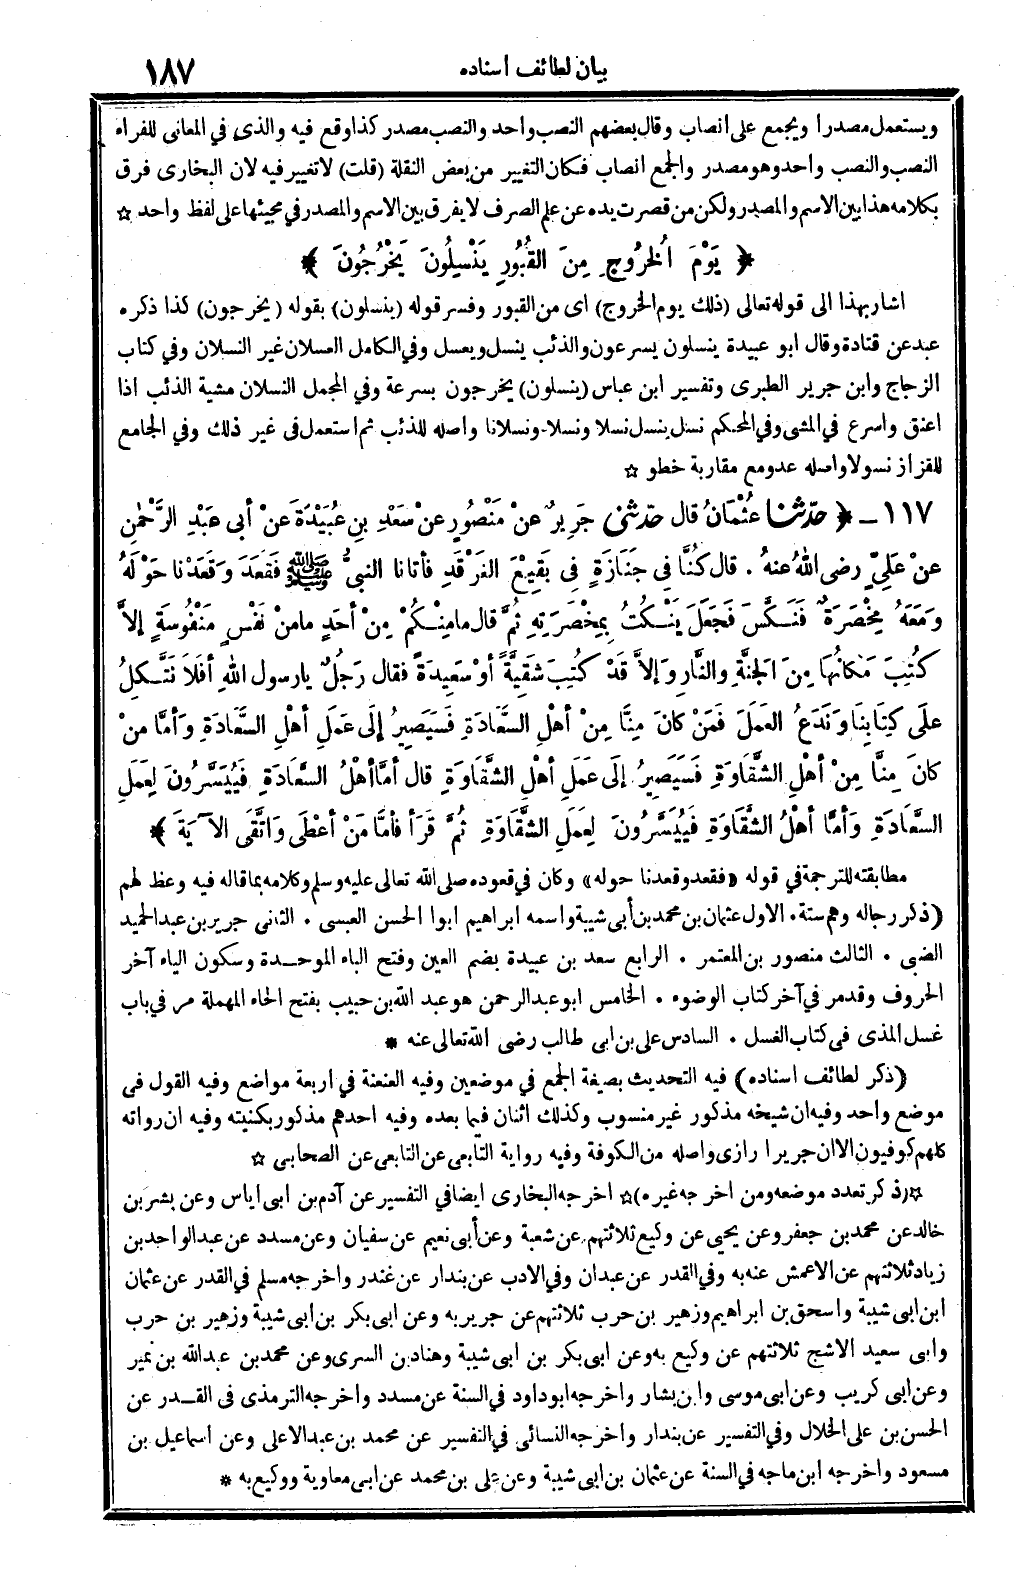 بيان لطائف اسناده ١٨٧
ويستعمل مصدرا ويجمع على انصاب وقال بعضهم النصب واحد والنصب مصدر كذا وقع فيه والذى في المعانى للفراء
النصب والنصب واحد وهو مصدر والجمع انصاب فكان التغيير من بعض النقلة (قلت) لا تغيير فيه لان البخارى فرق
بكلامه هذا بين الاسم والمصدر ولكن من قصرت يده عن علم الصرف لا يفرق بين الاسم والمصدر في مجيئها على لفظ واحد ☆
﴿ يَوْمَ الْخُرُوجِ مِنَ القُبُورِ يَنْسِلُونَ يَخْرُجُونَ ﴾
اشار بهذا الى قوله تعالى (ذلك يوم الخروج) اى من القبور وفسر قوله (ينسلون) بقوله (يخرجون) كذا ذكره
عبد عن قتادة وقال ابو عبيدة ينسلون يسرعون والذئب ينسل ويعسل وفي الكامل العسلان غير النسلان وفي كتاب
الزجاج وابن جرير الطبرى وتفسير ابن عباس (ينسلون) يخرجون بسرعة وفي المجمل النسلان مشية الذئب اذا
اعنق واسرع في المشى وفي المحكم نسل ينسل نسلا ونسلا ونسلانا واصله للذئب ثم استعمل فى غير ذلك وفي الجامع
للقزاز نسولا واصله عدو مع مقاربة خطو ☆
١١٧ ـ ﴿ حدّثنا عُثْمَانُ قال حدّثني جَرِيرٌ عنْ مَنْصُورٍ عنْ سَعْدِ بنِ عُبَيْدَةَ عنْ أبى عَبْدِ الرَّحْمٰنِ
عنْ عَلِيٍّ رضى اللهُ عنهُ . قال كُنَّا فِي جَنَازَةٍ فِي بَقِيعَ الغَرْقَدِ فأتانا النبيُّ ﷺ فَقَعَدَ وَقَعَدْنا حَوْلَهُ
وَمَعَهُ مِخْصَرَةٌ فَنَكَّسَ فَجَعَلَ يَنْكُتُ بِمِخْصَرَتِهِ ثُمَّ قال مامِنْكُمْ مِنْ أحَدٍ مامنْ نَفْسٍ مَنْفُوسَةٍ إلاَّ
كُتِبَ مَكانُها مِنَ الجنَّةِ والنَّارِ وَإلاَّ قَدْ كُتِبَ شَقِيَّةً أوْ سَعِيدَةً فقال رَجُلٌ يارسول اللهِ أفَلاَ نَتَّكِلُ
علَى كِتابِنَا وَنَدَعُ العَمَلَ فَمَنْ كانَ مِنَّا مِنْ أهْلِ السَّعَادَةِ فَسَيَصِيرُ إلَى عَمَلِ أهْلِ السَّعادَةِ وَأمَّا منْ
كانَ مِنَّا مِنْ أهْلِ الشَّقاوَةِ فَسَيَصِيرُ إلَى عَمَلِ أهْلِ الشَّقَاوَةِ قال أمَّا أهْلُ السَّعَادَةِ فَيُيَسَّرُونَ لِعَمَلِ
السَّعَادَةِ وَأمَّا أهْلُ الشَّقَاوَةِ فَيُيَسَّرُونَ لِعَمَلِ الشَّقَاوَةِ ثُمَّ قَرَأ فأمَّا مَنْ أعْطَى وَاتَّقَى الآيَةَ ﴾
مطابقته للترجمة في قوله «فقعد وقعدنا حوله» وكان في قعوده صلى الله تعالى عليه وسلم وكلامه بما قاله فيه وعظ لهم
(ذكر رجاله وهم ستة . الاول عثمان بن محمد بن أبى شيبة واسمه ابراهيم ابوا الحسن العبسى . الثانى جرير بن عبد الحميد
الضبى . الثالث منصور بن المعتمر . الرابع سعد بن عبيدة بضم العين وفتح الباء الموحدة وسكون الياء آخر
الحروف وقد مر في آخر كتاب الوضوء . الخامس ابو عبد الرحمن هو عبد الله بن حبيب بفتح الحاء المهملة مر في باب
غسل المذى فى كتاب الغسل . السادس على بن ابى طالب رضى الله تعالى عنه *
(ذكر لطائف اسناده) فيه التحديث بصيغة الجمع في موضعين وفيه العنعنة في اربعة مواضع وفيه القول فى
موضع واحد وفيه ان شيخه مذكور غير منسوب وكذلك اثنان فيما بعده وفيه احدهم مذكور بكنيته وفيه ان رواته
كلهم كوفيون الا ان جريرا رازى واصله من الكوفة وفيه رواية التابعى عن التابعى عن الصحابى ☆
☆(ذكر تعدد موضعه ومن اخرجه غيره)☆ اخرجه البخارى ايضا في التفسير عن آدم بن ابى اياس وعن بشر بن
خالد عن محمد بن جعفر وعن يحيى عن وكيع ثلاثتهم عن شعبة وعن أبى نعيم عن سفيان وعن مسدد عن عبد الواحد بن
زياد ثلاثتهم عن الاعمش عنه به وفي القدر عن عبدان وفي الادب عن بندار عن غندر واخرجه مسلم في القدر عن عثمان
ابن ابى شيبة واسحق بن ابراهيم وزهير بن حرب ثلاثتهم عن جرير به وعن ابى بكر بن ابى شيبة وزهير بن حرب
وابى سعيد الاشج ثلاثتهم عن وكيع به وعن ابى بكر بن ابى شيبة وهناد بن السرى وعن محمد بن عبد الله بن نمير
وعن ابى كريب وعن ابى موسى وابن بشار واخرجه ابو داود في السنة عن مسدد واخرجه الترمذى فى القدر عن
الحسن بن على الخلال وفي التفسير عن بندار واخرجه النسائى في التفسير عن محمد بن عبد الاعلى وعن اسماعيل بن
مسعود واخرجه ابن ماجه في السنة عن عثمان بن ابى شيبة وعن على بن محمد عن ابى معاوية ووكيع به *